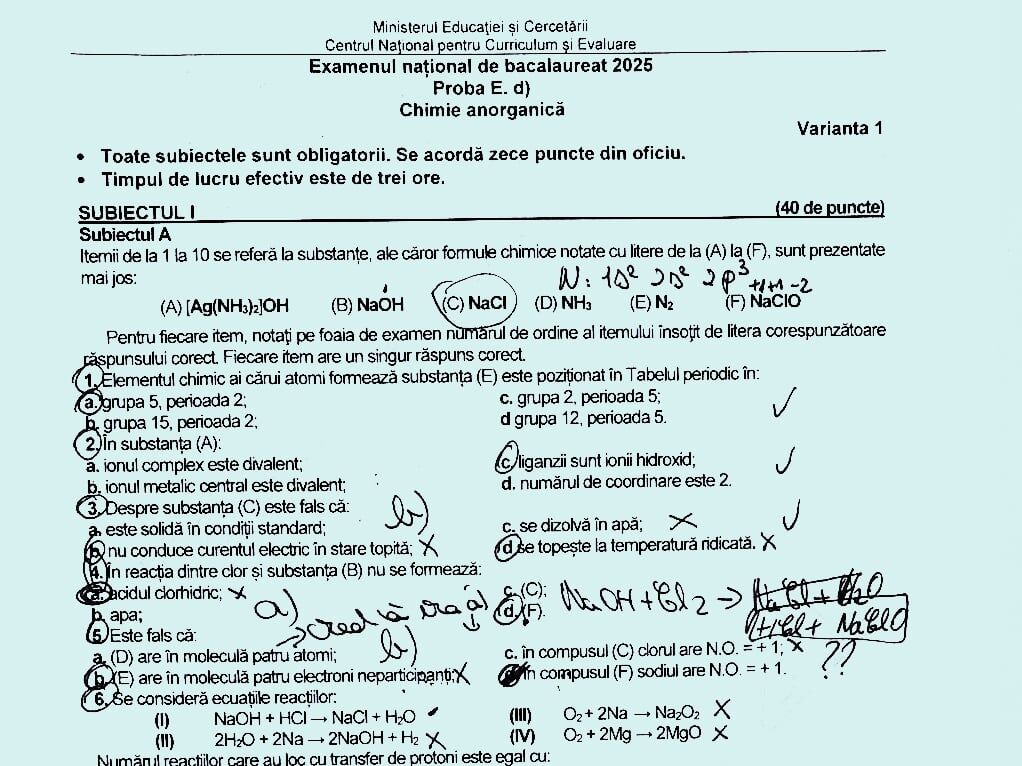 Ministerul Educației și Cercetării
Centrul Național pentru Curriculum și Evaluare
Examenul național de bacalaureat 2025
Proba E. d)
Chimie anorganică
Varianta 1
• Toate subiectele sunt obligatorii. Se acordă zece puncte din oficiu.
• Timpul de lucru efectiv este de trei ore.
SUBIECTUL I (40 de puncte)
Subiectul A
Itemii de la 1 la 10 se referă la substanțe, ale căror formule chimice notate cu litere de la (A) la (F), sunt prezentate
mai jos:
N: 1s² 2s² 2p³
+1+1-2
(A) [Ag(NH₃)₂]OH (B) NaOH (C) NaCl (D) NH₃ (E) N₂ (F) NaClO
Pentru fiecare item, notați pe foaia de examen numărul de ordine al itemului însoțit de litera corespunzătoare
răspunsului corect. Fiecare item are un singur răspuns corect.
1. Elementul chimic ai cărui atomi formează substanța (E) este poziționat în Tabelul periodic în:
a. grupa 5, perioada 2; c. grupa 2, perioada 5;
b. grupa 15, perioada 2; d grupa 12, perioada 5.
2. În substanța (A):
a. ionul complex este divalent; c. liganzii sunt ionii hidroxid;
b. ionul metalic central este divalent; d. numărul de coordinare este 2.
3. Despre substanța (C) este fals că: b)
a. este solidă în condiții standard; c. se dizolvă în apă;
b. nu conduce curentul electric în stare topită; d. se topește la temperatură ridicată.
4. În reacția dintre clor și substanța (B) nu se formează:
a. acidul clorhidric; a) c. (C):
b. apa; d. (F). NaOH + Cl₂ →
HCl + NaClO
5. Este fals că: → cred că era a)
a. (D) are în moleculă patru atomi; b) c. în compusul (C) clorul are N.O. = + 1; ??
b. (E) are în moleculă patru electroni neparticipanți; d. în compusul (F) sodiul are N.O. = + 1.
6. Se consideră ecuațiile reacțiilor:
(I) NaOH + HCl → NaCl + H₂O (III) O₂ + 2Na → Na₂O₂
(II) 2H₂O + 2Na → 2NaOH + H₂ (IV) O₂ + 2Mg → 2MgO
Numărul reacțiilor care au loc cu transfer de protoni este egal cu: